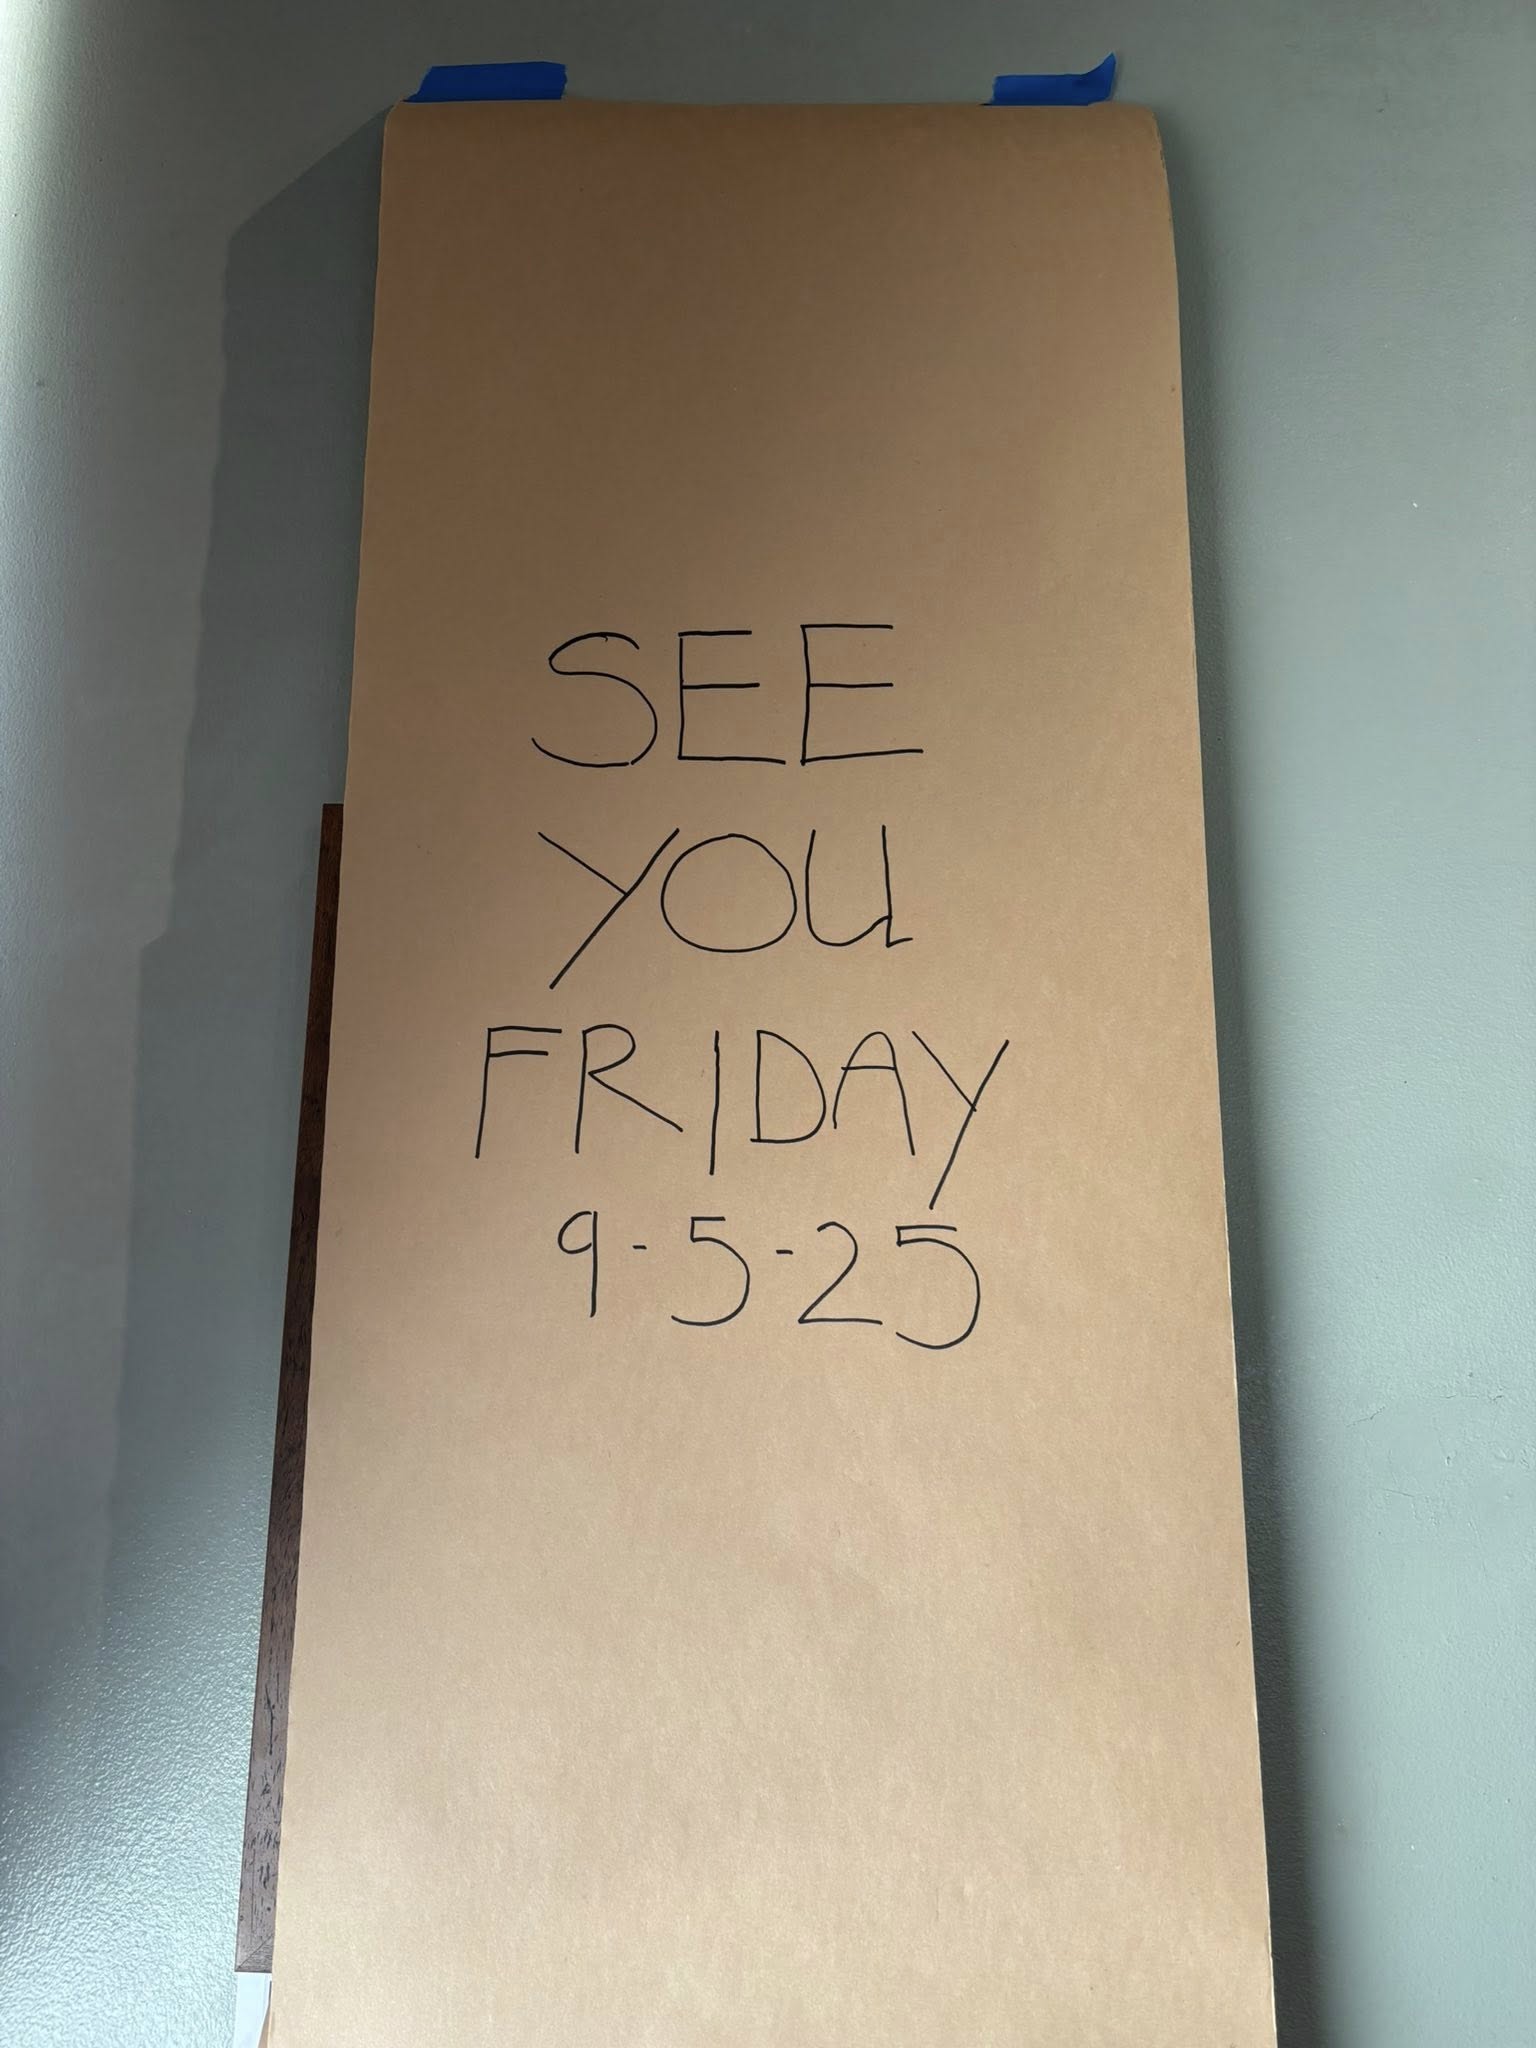 SEE
YOU
FRIDAY
9-5-25